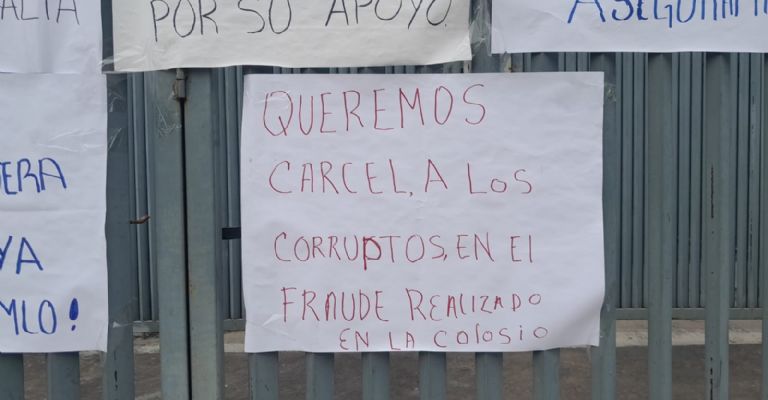 POR SU APOYO
QUEREMOS
CARCEL, A LOS
CORRUPTOS, EN El
FRAUDE REALIZADO
EN LA COLOSIO
YA
MLO!